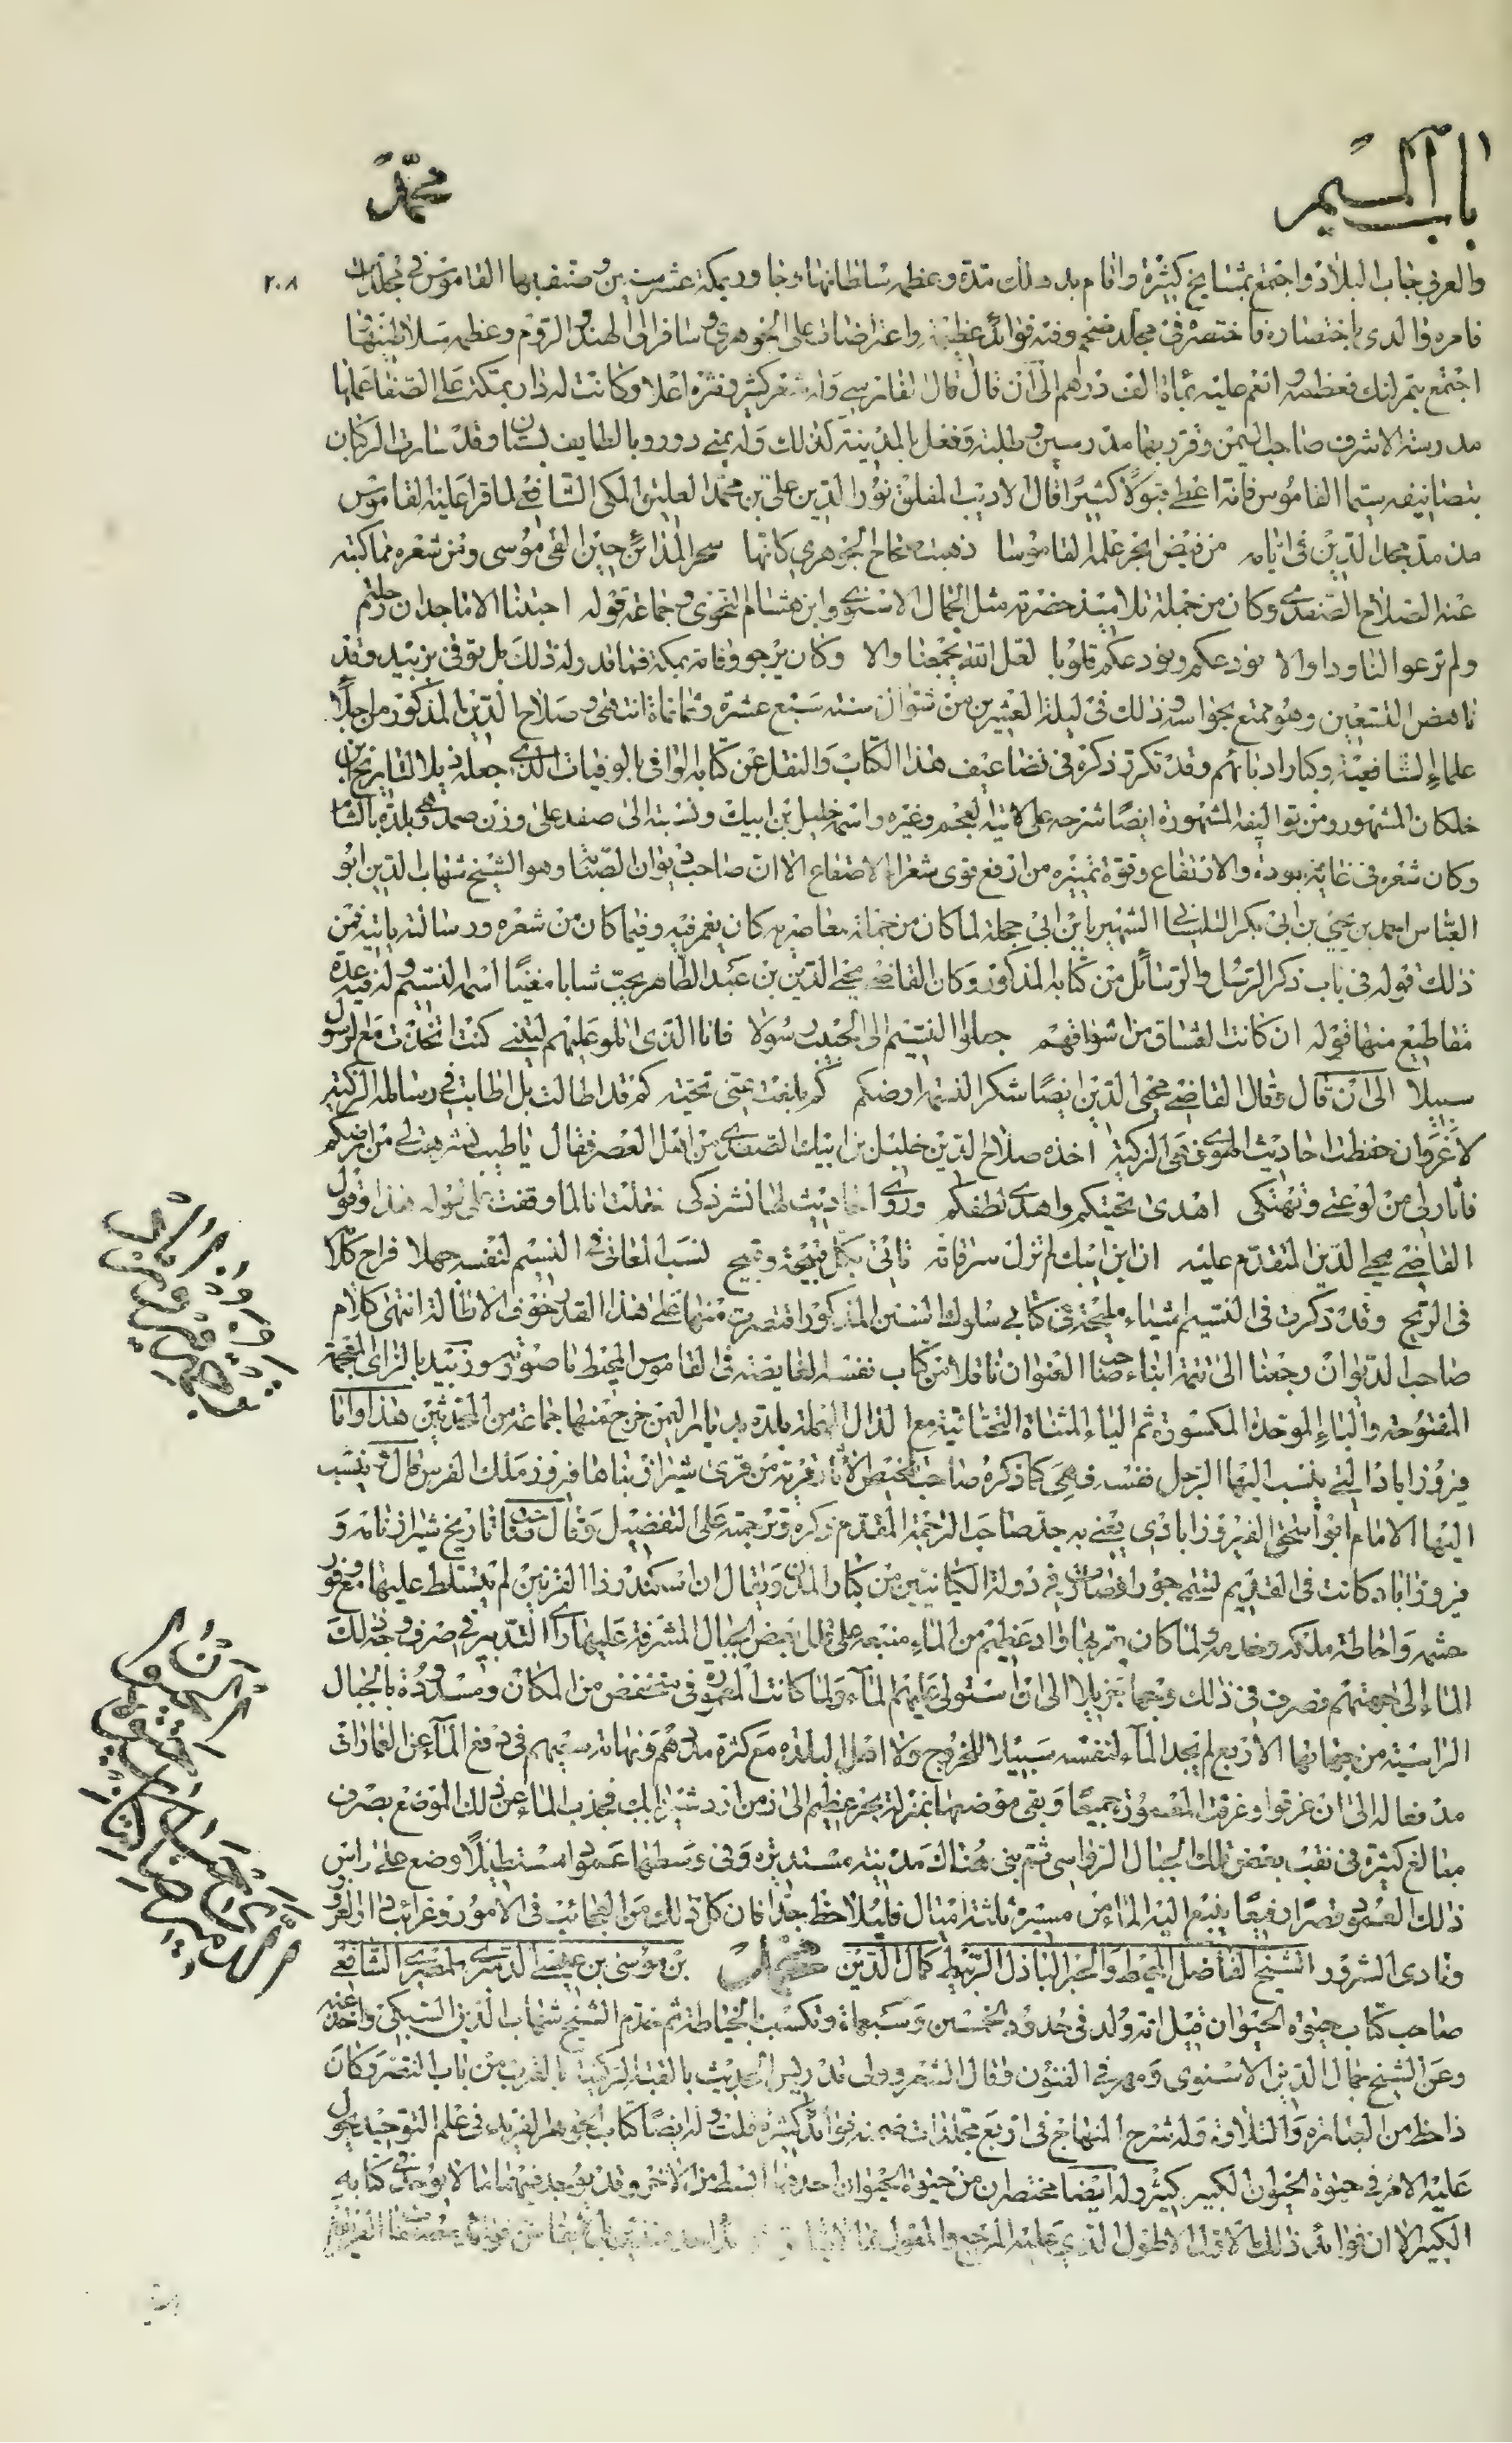 باب الميم
محمد
٢٠٨
والعرب جاب البلاد واجتمع بمشايخ كثيرة واقام بدهلك مدة وعظمه سلطانها وجاور بمكة عشر سنين وصنف بها القاموس في مجلدات
فامره والدي باختصاره فاختصره في مجلد ضخم وفيه فوائد عظيمة واعتراضات على الجوهري وسافر الى الهند والروم وعظمه سلاطينها
اجتمع بتمرلنك فعظمه وانعم عليه بمأة الف دراهم الى ان قال قال الفاسي وله شعر كثير ونثره اعلا وكانت له دار بمكة على الصفا عملها
مدرسة الاشرف صاحب اليمن وقرر بها مدرسين وطلبة وفعل بالمدينة كذلك وله بمنى دور وبالطايف بستان وقد سارت الركبان
بتصانيفه سيما القاموس فانه اعطي قبولا كثيرا قال الاديب المفلق نور الدين علي بن محمد العليف المكي الشافعي لما قرا عليه القاموس
مذ مد مجد الدين في ايامه من فيض ابحر علمه القاموسا ذهبت صحاح الجوهري كانها سحر المداين حين القى موسى ومن شعره مما كتبه
عنه الصلاح الصفدي وكان من جملة تلاميذ حضرته مثل الجمال الاسنوي وابن هشام النحوي وجماعة قوله احبتنا الاماجد ان رحلتم
ولم ترعوا لنا ودا والا نودعكم ونودعكم قلوبا لعل الله يجمعنا والا وكان يرجو وفاته بمكة فما قدر له ذلك بل توفي بزبيد وقد
ناهض التسعين وهو ممتع بحواسه وذلك في ليلة العشرين من شوال سنة سبع عشرة وثمانمأة انتهى وصلاح الدين المذكور من اجلاء
علماء الشافعية وكبار ادبائهم وقد تكرر ذكره في تضاعيف هذا الكتاب والنقل عن كتابه الوافي بالوفيات الذي جعله ذيلا لتاريخ ابن
خلكان المشهور ومن تواليفه المشهورة ايضا شرحه على لامية العجم وغيره واسمه خليل بن ايبك ونسبته الى صفد على وزن صمد وهي بلدة بالشام
وكان شعره في غاية الجودة والارتفاع وقوة تمييزه من ارفع قوى شعراء الاصقاع الا ان صاحب ديوان الصبابة وهو الشيخ شهاب الدين ابو
العباس احمد بن يحيى بن ابي بكر التلمساني الشهير بابن ابي حجلة لما كان من جملة معاصريه كان يغمز فيه وفيما كان من شعره ورسالته ياتيه فمن
ذلك قوله في باب ذكر الرسل والرسائل من كتابه المذكور وكان القاضي محيى الدين بن عبد الظاهر يحب شابا مغنيا اسمه النسيم وله فيه عدة
مقاطيع منها قوله ان كانت العشاق من اشواقهم جعلوا النسيم الى الحبيب رسولا فانا الذي اتلو عليهم ليتني كنت اتخذت مع الرسول
سبيلا الى ان قال وقال القاضي محيى الدين ايضا شكرا لنسمة ارضكم كم بلغت عني تحية كم قد اطالت بل اطابت في رسائلها الزكية
لا غرو ان حفظت احاديث الهوى فهي الزكية اخذه صلاح الدين خليل بن ايبك الصفدي من اهل العصر فقال يا طيب نشر هب لي من ارضكم
فاثار لي من لوعتي وتهتكي اهدى تحيتكم واهدى لطفكم وروى احاديث لها نشر ذكي فقلت انا لما وقفت على قوله هذا وقول
القاضي محيى الدين المتقدم عليه ان ابن ايبك لم تزل سرقاته تاتي بكل قبيحة وقبيح نسب المعاني في النسيم لنفسه جهلا فراح كلامه
في الريح وقد ذكرت في النسيم اشياء مليحة في كتابي سلوك السنن المذكور اقتصرت منها على هذا القدر خوف الاطالة انتهى كلام
صاحب الديوان رجعنا الى تتمة انباء صاحب العنوان ناقلا من كتاب نفسه الغايضة في القاموس المحيط ما صورته وزبيد بالزاي المعجمة
المفتوحة والباء الموحدة المكسورة ثم الياء المثناة التحتانية مع الدال المهملة بلدة بديار اليمن خرج منها جماعة من المحدثين هذا واما
فيروزاباد التي ينسب اليها الرجل نفسه فهي كما ذكره صاحب تلخيص الآثار قرية من قرى شيراز بناها فيروز ملك الفرس قال ينسب
اليها الامام ابو اسحق الفيروزابادي يعني به جد صاحب الترجمة المقدم ذكره وترجمته على التفضيل وقال صاحب تاريخ شيراز نامه و
فيروزاباد كانت في القديم تسمى جور في دولة الكيانيين من كبار المدن ويقال ان اسكندر ذا القرنين لم يتسلط عليها مع وفور
حشمه واحاطة ملكه وخدمه ولما كان يمر بها واد عظيم من الماء منبعه على تلال بعض الجبال المشرفة عليها راى التدبير في صرف وجه ذلك
الماء الى جهتهم فصرف في ذلك وجها جزيلا الى ان استولى عليهم الماء ولما كانت المعمورة في منخفض من المكان ومسدودة بالجبال
الراسية من جهاتها الاربع لم يجد الماء لنفسه سبيلا للخروج ولا اهل البلدة مع كثرة مددهم ونهاية سعيهم في دفع الماء عن العمارات
مدفعا له الى ان غرقوا وغرقت المعمورة جميعا وبقى موضعها بمنزلة بحر عظيم الى زمن اردشير بابك فجذب الماء عن ذلك الموضع بصرف
مبالغ كثيرة في نقب بعض تلك الجبال الرواسي ثم بنى هناك مدينة مستديرة وفي وسطها عمودا مستطيلا وضع على راس
ذلك العمود قصرا رفيعا ينبع اليه الماء من مسيرة ثلثة اميال فليلاحظ جدا فان كل ذلك من العجائب في الامور وغرائب دار الغرور
ونادي الشرور الشيخ الفاضل المحيط والحبر الباذل الربيط كمال الدين محمد بن موسى بن عيسى الدميري المصري الشافعي
صاحب كتاب حيوة الحيوان قيل انه ولد في حدود الخمسين وسبعمأة وتكسب بالخياطة ثم خدم الشيخ شهاب الدين السبكي واخذ عنه
وعن الشيخ جمال الدين الاسنوي ومهر في الفنون وقال الشعر وولى تدريس الحديث بالقبة الركنية بالقرب من باب النصر وكان
ذا حظ من العبادة والتلاوة وله شرح المنهاج في اربع مجلدات ضمنه فوائد كثيرة قلت وله ايضا كتاب الجوهر الفريد في علم التوحيد يحول
عليه الامر في حيوة الحيوان الكبير كثيرا وله ايضا مختصران من حيوة الحيوان احدهما ابسط من الاخر وقد يوجد فيهما ما لا يوجد في كتابه
الكبير الا ان فوائد ذلك الاول الاطول الذي عليه المرجع والمعول